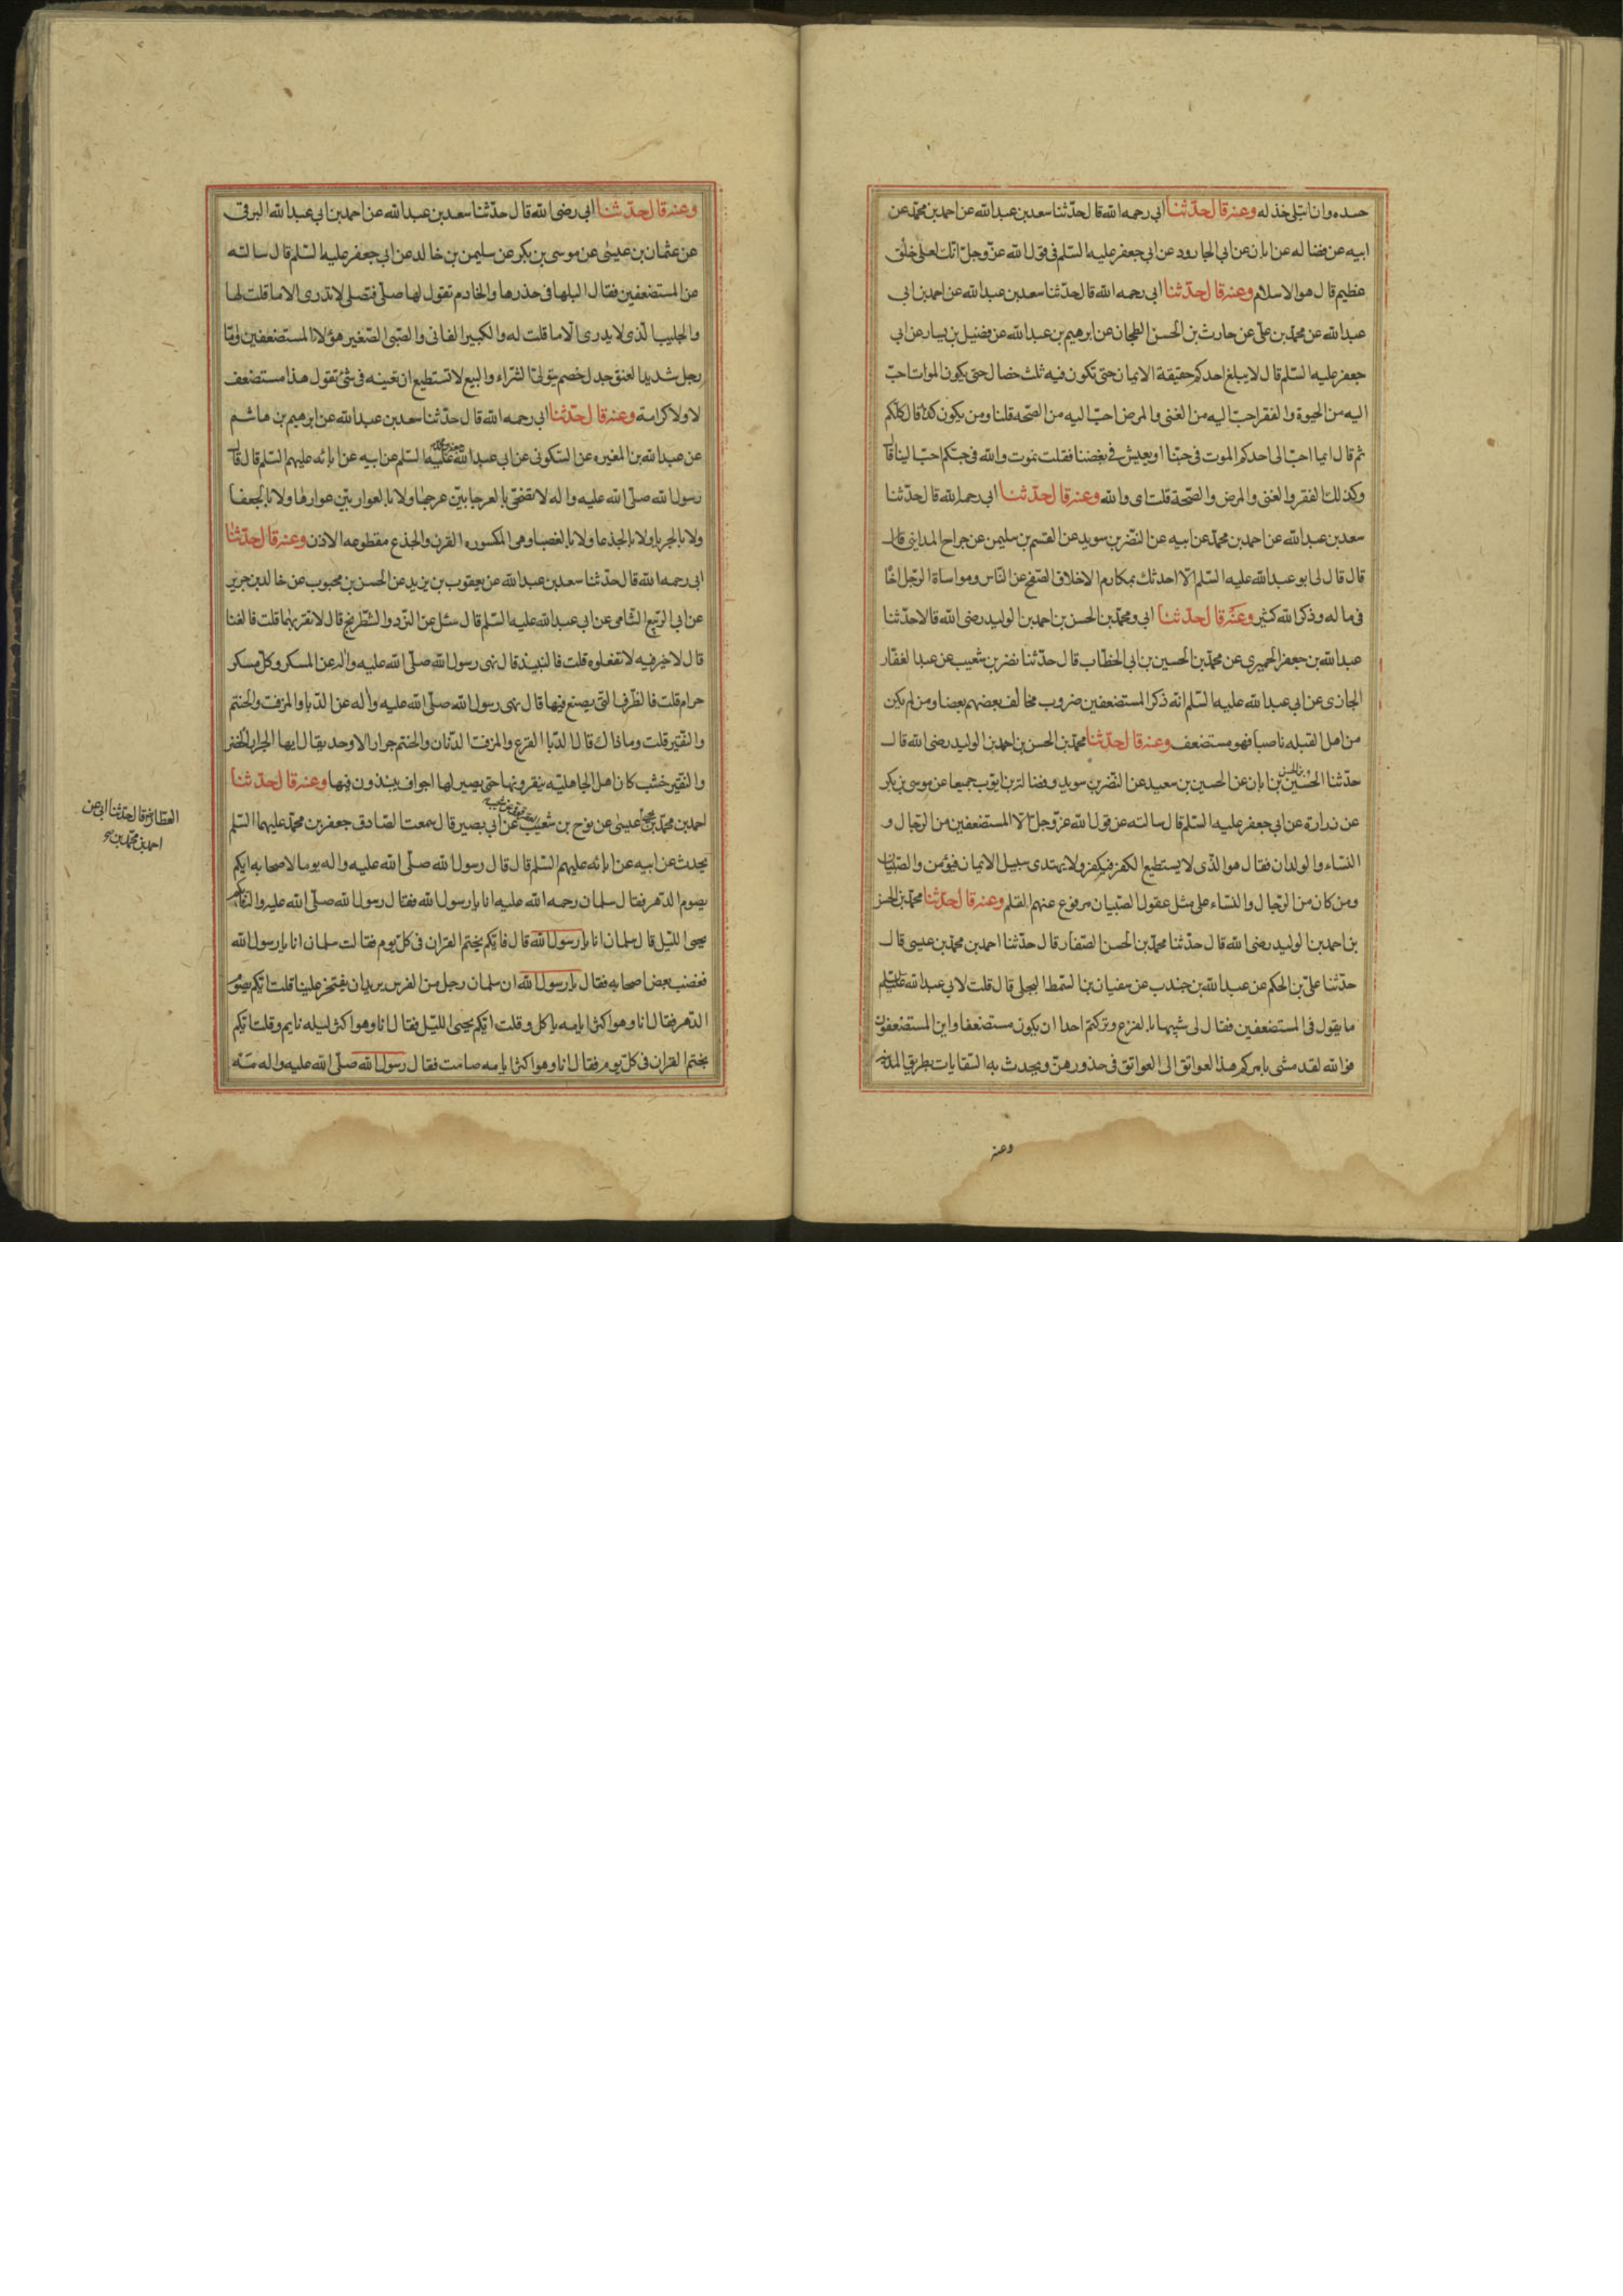 حسده وان ابتلى خذله وعنه قال حدّثنا ابى رحمه الله قال حدّثنا سعد بن عبد الله عن احمد بن محمّد عن
ابيه عن فضاله عن ابان عن ابى الجارود عن ابى جعفر عليه السّلم فى قول الله عزّ وجلّ انّك لعلى خلق
عظيم قال هو الاسلام وعنه قال حدّثنا ابى رحمه الله قال حدّثنا سعد بن عبد الله عن احمد بن ابى
عبد الله عن محمّد بن على عن حارث بن الحسن الطحان عن ابرهيم بن عبد الله عن فضيل بن يسار عن ابى
جعفر عليه السّلم قال لا يبلغ احدكم حقيقة الايمان حتى تكون فيه ثلث خصال حتى يكون الموات احبّ
اليه من الحيوة والفقر احبّ اليه من الغنى والمرض احبّ اليه من الصّحه قلنا ومن يكون كذا قال كلّكم
ثم قال ايما احبّ الى احدكم الموت فى حبّنا او يعيش فى بغضنا فقلت نموت والله فى حبّكم احبّ الينا قال
وكذلك الفقر والغنى والمرض والصّحة قلت اى والله وعنه قال حدّثنا ابى رحمه الله قال حدّثنا
سعد بن عبد الله عن احمد بن محمّد عن ابيه عن النّضر بن سويد عن القسم بن سليمن عن جراح المداينى قال
قال قال لى ابو عبد الله عليه السّلم الا احدثك بمكارم الاخلاق الصّفح عن النّاس ومواساة الرّجل اخاً
فى ماله وذكر الله كثير وعنه قال حدّثنا ابى ومحمّد بن الحسن بن احمد بن الوليد رضى الله قالا حدّثنا
عبد الله بن جعفر الحميرى عن محمّد بن الحسين بن ابى الخطّاب قال حدّثنا نضر بن شعيب عن عبد الغفّار
الجازى عن ابى عبد الله عليه السّلم انّه ذكر المستضعفين ضروب مخالف بعضهم بعضا ومن لم يكن
من اهل القبله ناصبا فهو مستضعف وعنه قال حدّثنا محمّد بن الحسن بن احمد بن الوليد رضى الله قال
حدّثنا الحسين بن الحسن بن ابان عن الحسين بن سعيد عن النّضر بن سويد وفضالة بن ايّوب جميعا عن موسى بن بكر
عن زرارة عن ابى جعفر عليه السّلم قال سالته عن قول الله عزّ وجلّ الا المستضعفين من الرّجال و
النّساء والولدان فقال هو الّذى لا يستطيع الكفر فيكفر ولا يهتدى سبيل الايمان فيؤمن والصّبيان
ومن كان من الرّجال والنّساء على مثل عقول الصّبيان مرفوع عنهم القلم وعنه قال حدّثنا محمّد بن الحسن
بن احمد بن الوليد رضى الله قال حدّثنا محمّد بن الحسن الصّفار قال حدّثنا احمد بن محمّد بن عيسى قال
حدّثنا علىّ بن الحكم عن عبد الله بن جندب عن سفيان بن السّمط البجلى قال قلت لابى عبد الله عليه السّلم
ما يقول فى المستضعفين فقال لى شبيها بالفزع وتركتم احدا ان يكون مستضعفا واين المستضعفون
فوالله لقد مشى بامركم هذا العواتق الى العواتق فى خذورهنّ ويحدث به السّقايات بطريق المدينه
وعنه
وعنه قال حدّثنا ابى رضى الله قال حدّثنا سعد بن عبد الله عن احمد بن ابى عبد الله البرقى
عن عثمان بن عيسى عن موسى بن بكر عن سليمن بن خالد عن ابى جعفر عليه السّلم قال سالته
عن المستضعفين فقال البلها فى خذرها والخادم تقول لها صلّى فتصلى لا تدرى الا ما قلت لها
والجليب الّذى لا يدرى الّا ما قلت له والكبير الفانى والصّبى الصّغير هؤلاء المستضعفين وامّا
رجل شديد العنق جدل خصم يتولّى الشراء والبيع لا تستطيع ان تغبنه فى شئ تقول هذا مستضعف
لا ولا كرامة وعنه قال حدّثنا ابى رحمه الله قال حدّثنا سعد بن عبد الله عن ابرهيم بن هاشم
عن عبد الله بن المغيره عن السّكونى عن ابى عبد الله عليه السّلم عن ابيه عن ابائه عليهم السّلم قال قال
رسول الله صلّى الله عليه واله لا تضحّى بالعرجا بيّن عرجها ولا بالعوار بيّن عوارها ولا بالعجفا
ولا بالجربا ولا بالجذعا ولا بالعضبا وهى المكسوره القرن والجذع مقطوعه الاذن وعنه قال حدّثنا
ابى رحمه الله قال حدّثنا سعد بن عبد الله عن يعقوب بن يزيد عن الحسن بن محبوب عن خالد بن جرير
عن ابى الرّبيع الشّامى عن ابى عبد الله عليه السّلم قال سئل عن النّرد والشّطرنج قال لا تقربهما قلت فالغنا
قال لا خير فيه لا تفعلوه قلت فالنبيذ قال نهى رسول الله صلّى الله عليه واله عن المسكر وكلّ مسكر
حرام قلت فالظّرف التى يصنع فيها قال نهى رسول الله صلّى الله عليه واله عن الدّبا والمزفت والحنتم
والنّقير قلت وما ذاك قال الدّبا القرع والمزفت الدّنان والحنتم جرار الاوحد يقال ايها الجرار الخضر
والنقير خشب كان اهل الجاهليّه ينقرونها حتى يصير لها اجواف ينبذون فيها وعنه قال حدّثنا
احمد بن محمّد بن يحيى عيسى عن نوح بن شعيب عن ابى بصير قال سمعت الصّادق جعفر بن محمّد عليهما السّلم
العطّار قال حدّثنا ابى عن
احمد بن محمّد بن
يحدث عن ابيه عن ابائه عليهم السّلم قال قال رسول الله صلّى الله عليه واله يوما لاصحابه ايكم
يصوم الدّهر فقال سلمان رحمه الله عليه انا يا رسول الله فقال رسول الله صلّى الله عليه واله فايّكم
يحيى اللّيل قال سلمان انا يا رسول الله قال فايّكم يختم القران فى كلّ يوم فقالت سلمان انا يا رسول الله
فغضب بعض اصحابه فقال يا رسول الله ان سلمان رجل من الفرس يريد ان يفتخر علينا قلت ايّكم يصوم
الدّهر فقال انا وهو اكثر ايامه ياكل وقلت ايّكم يحيى اللّيل فقال انا وهو اكثر ليله نايم وقلت ايّكم
يختم القران فى كلّ يوم فقال انا وهو اكثر ايامه صامت فقال رسول الله صلّى الله عليه واله مه